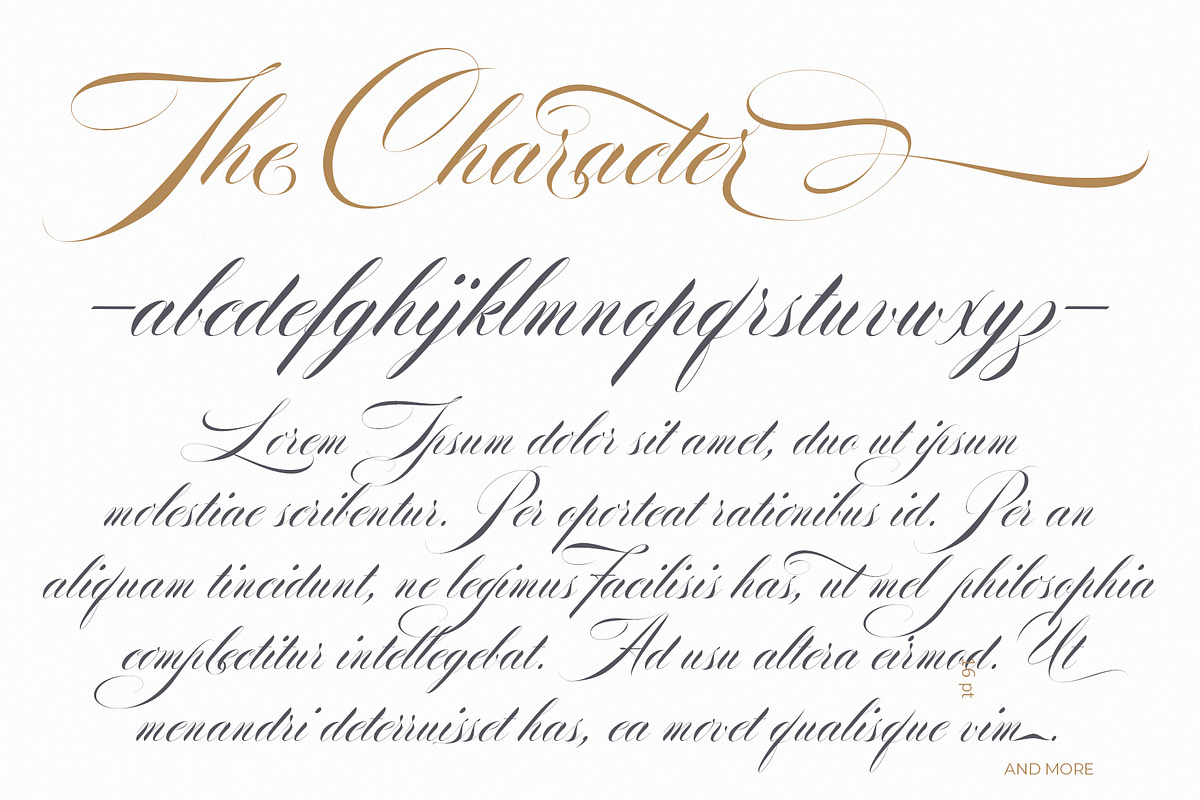 The Character
–abcdefghijklmnopqrstuvwxyz–
Lorem Ipsum dolor sit amet, duo ut ipsum
molestiae scribentur. Per oporteat rationibus id. Per an
aliquam tincidunt, ne legimus Facilisis has, ut mel philosophia
complectitur intellegebat. Ad usu altera eirmod. Ut
16 pt
menandri deterruisset has, ea movet qualisque vim.
AND MORE